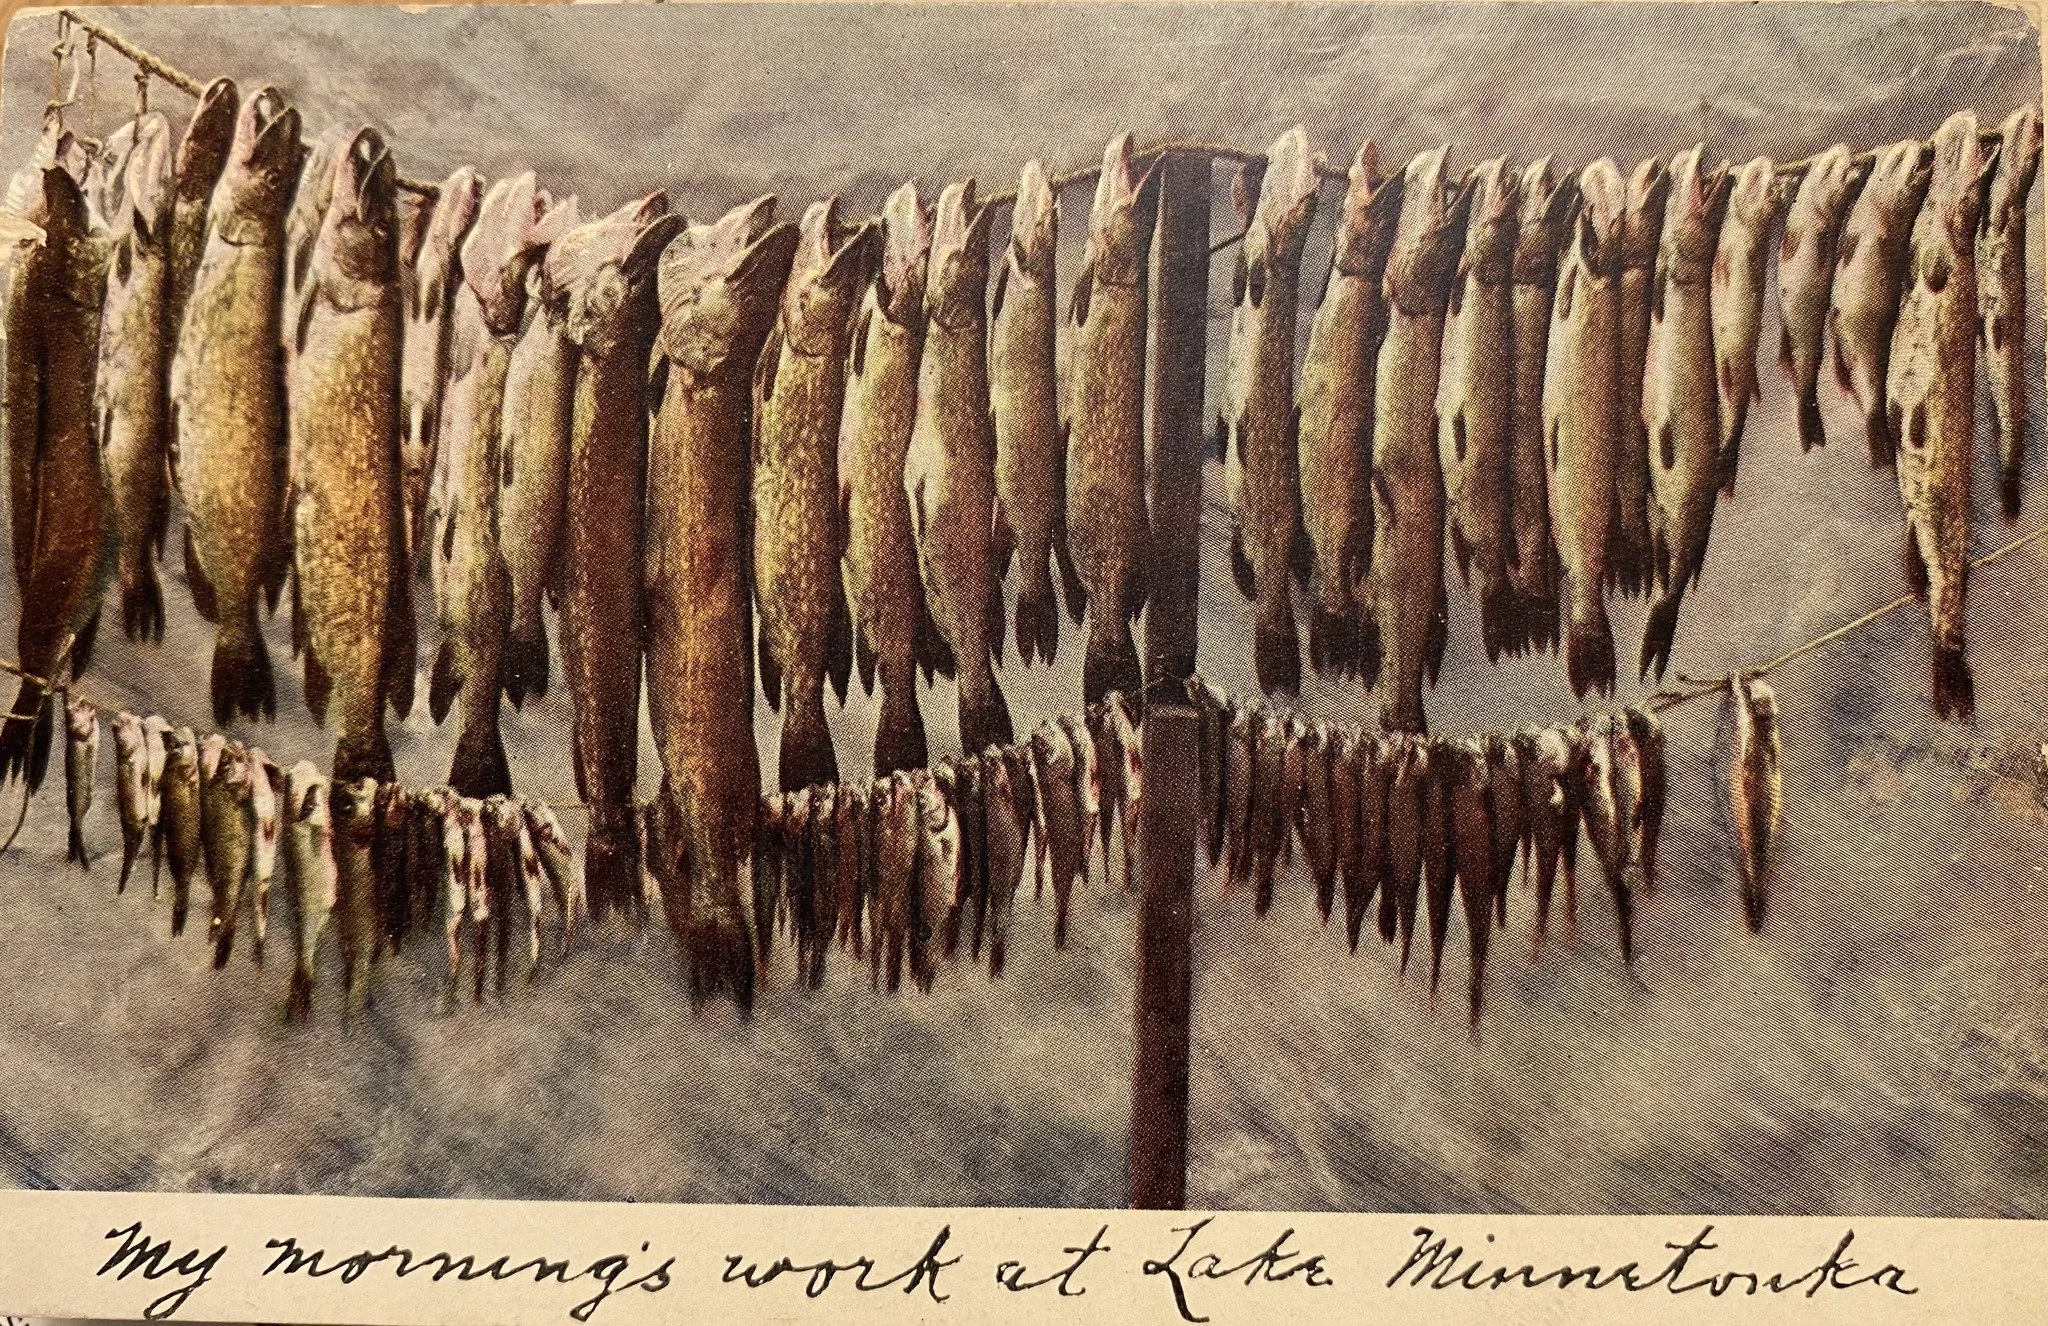 My morning's work at Lake Minnetonka